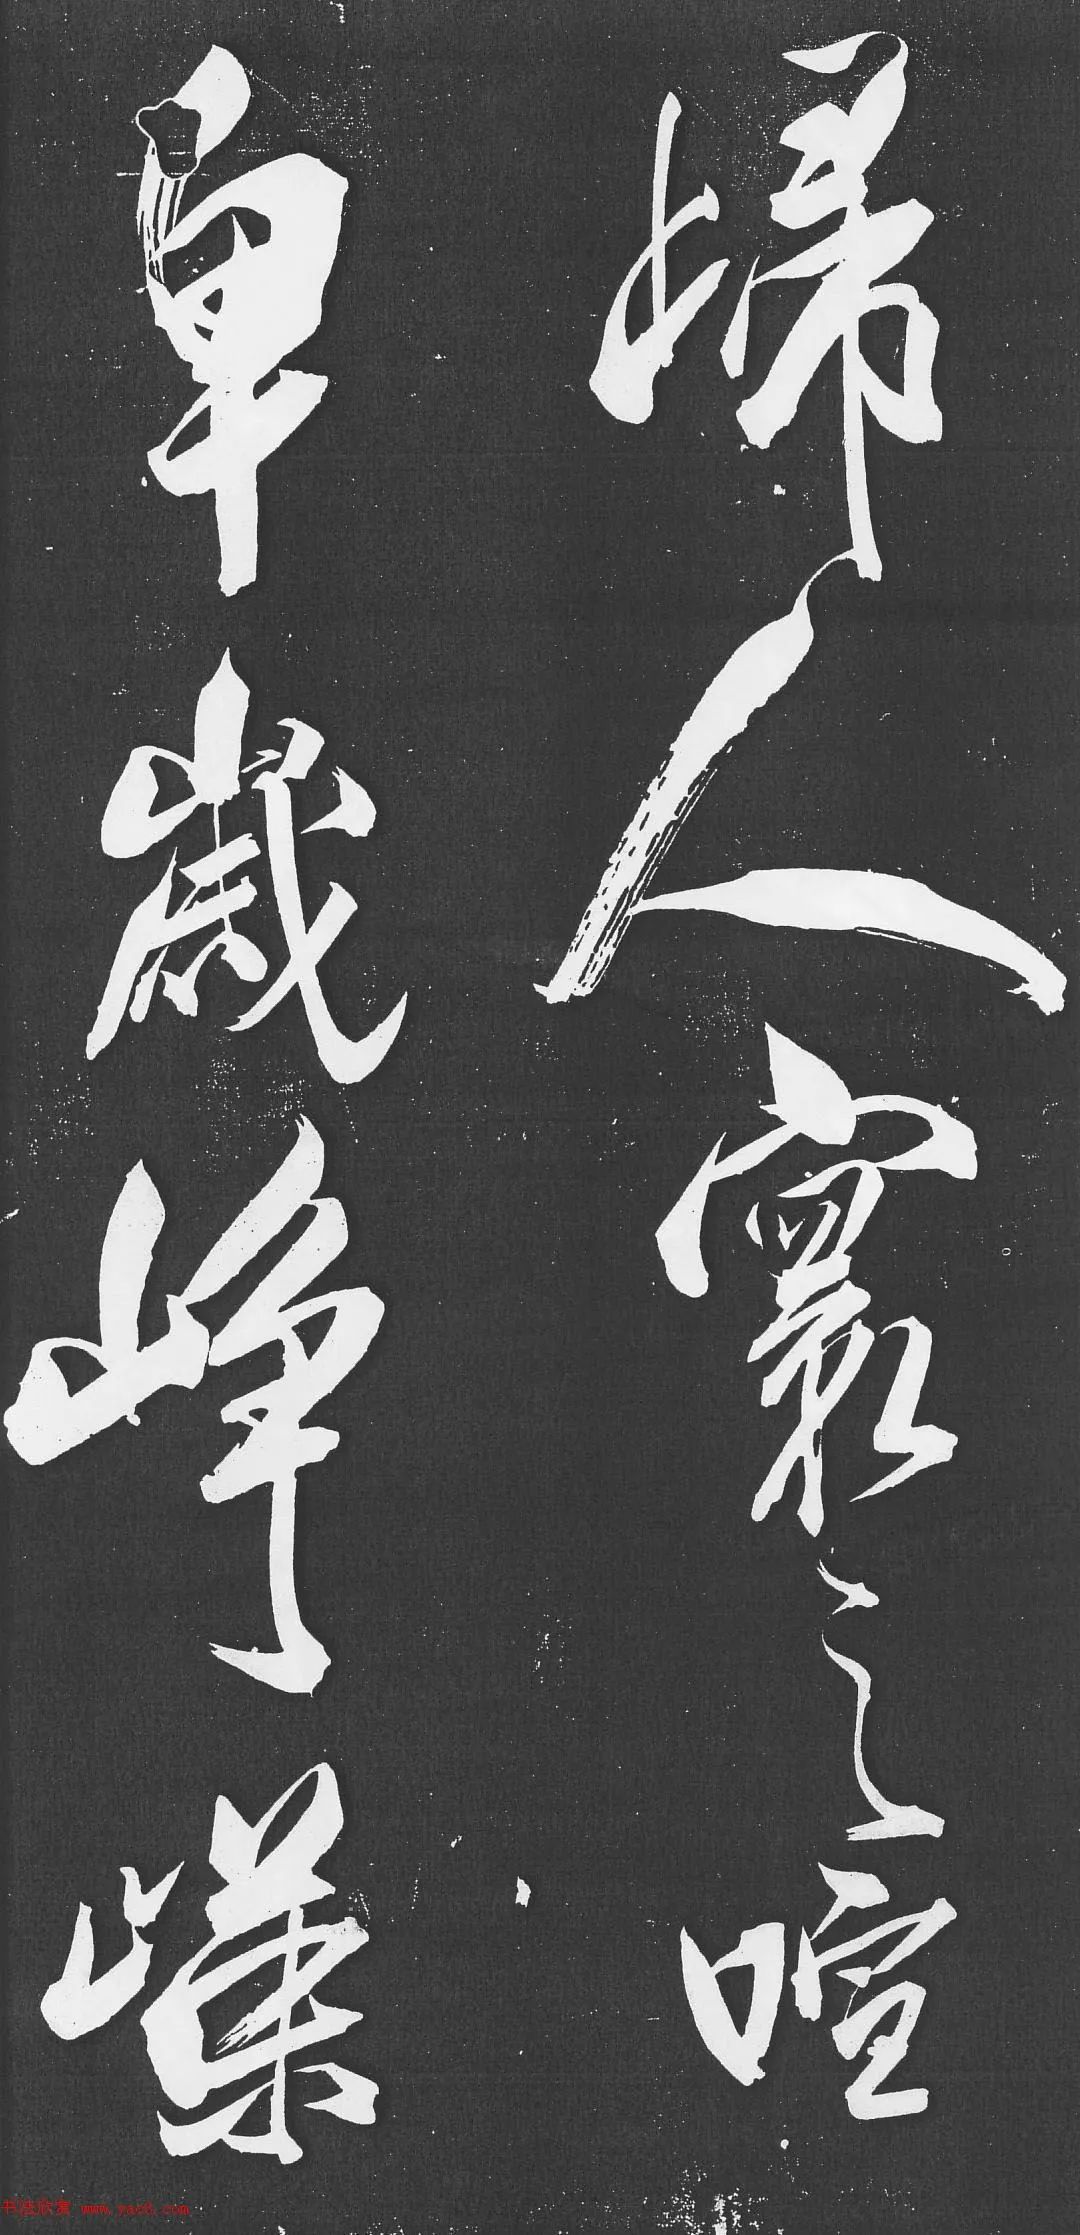 歸人寰之喧
卑歲崢嶸
书法欣赏 www.yac8.com